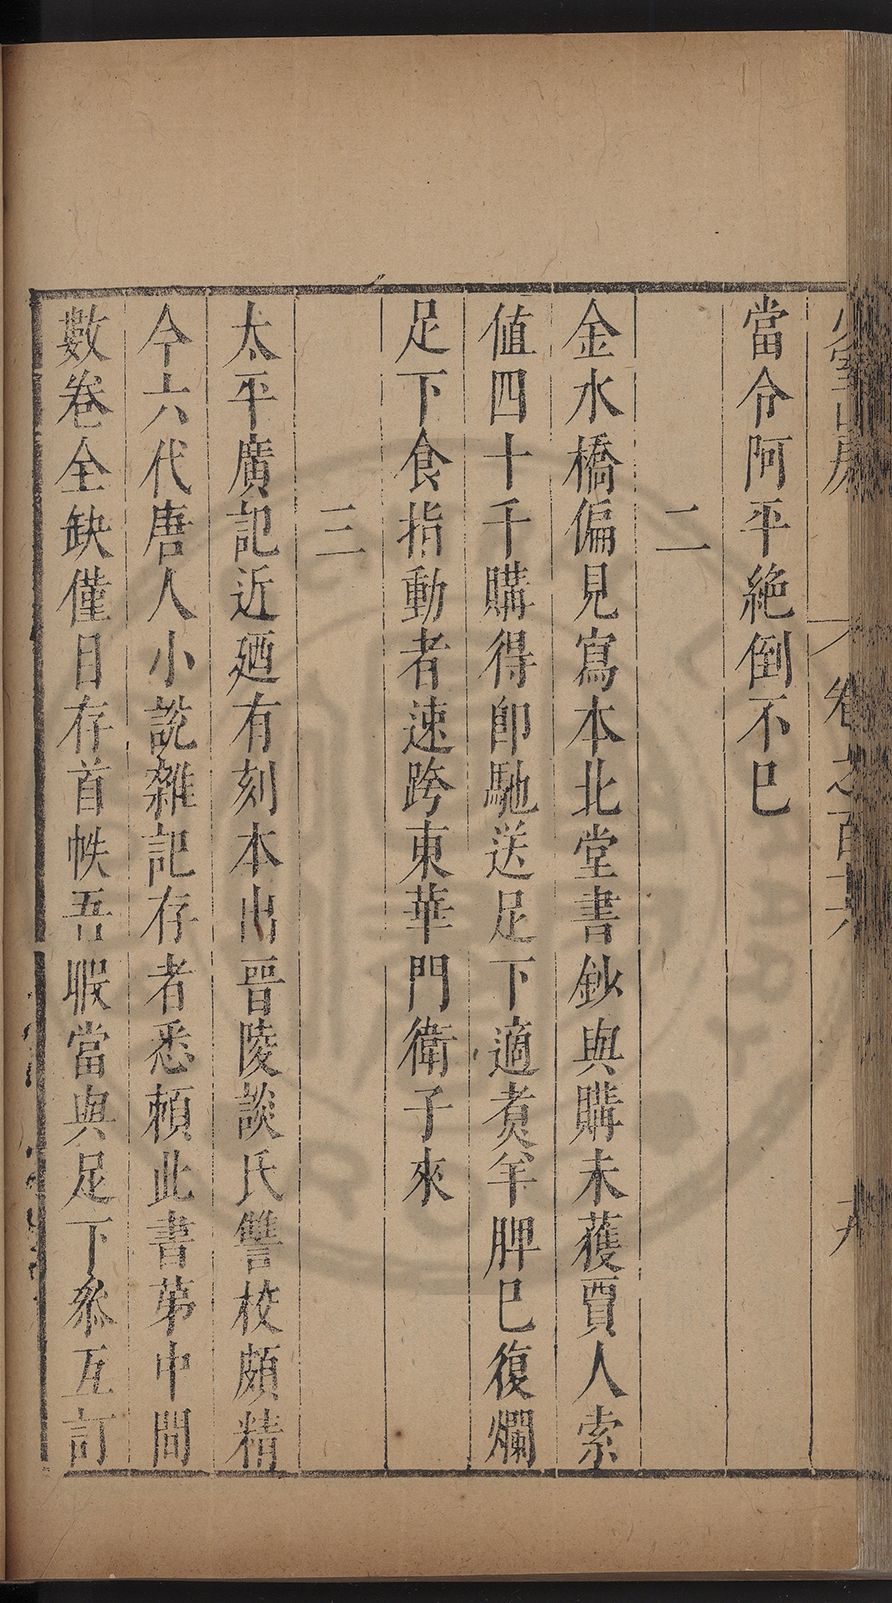 少室山房
卷之百十六
九
當令阿平絶倒不已
二
金水橋偏見寫本北堂書鈔與購未獲賈人索
値四十千購得即馳送足下適煑羊脾已復爛
足下食指動者速跨東華門衛子來
三
太平廣記近廼有刻本出晉陵談氏讐校頗精
今六代唐人小說雜記存者悉頼此書第中間
數卷全缺僅目存首帙吾暇當與足下叅互訂